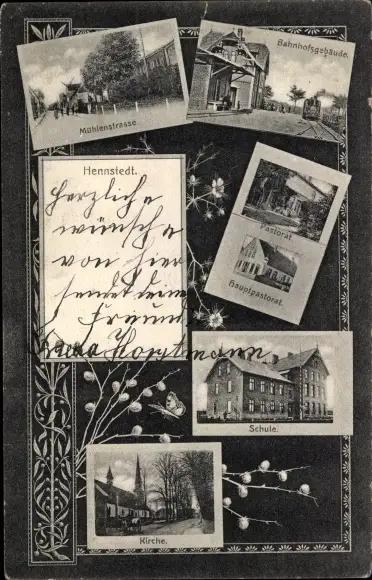 Mühlenstrasse
Bahnhofsgebäude.
Hennstedt.
Herzliche
wünsche
von hier
sendet deine
Freund
Horstmann
Pastorat.
Hauptpastorat.
Schule.
Kirche.